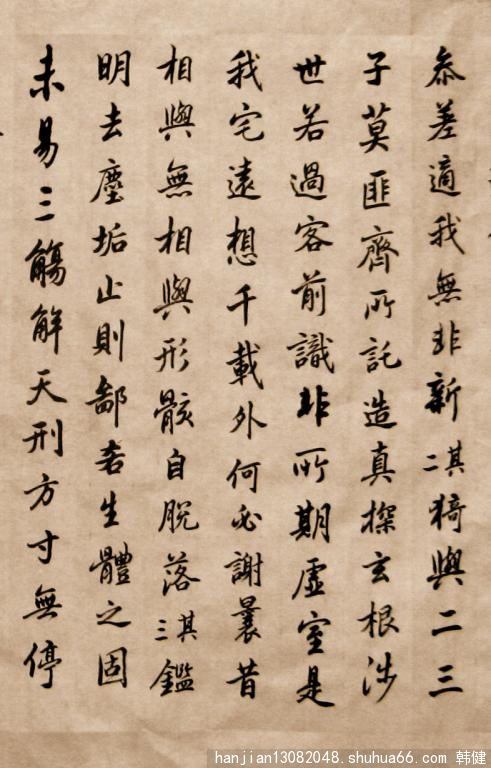 参差適我無非新其二猗與二三
子莫匪齊所託造真探玄根涉
世若過客前識非所期虛室是
我宅遠想千載外何必謝曩昔
相與無相與形骸自脫落其三鑑
明去塵垢止則鄙吝生體之固
未易三觴解天刑方寸無停
hanjian13082048.shuhua66.com 韩健